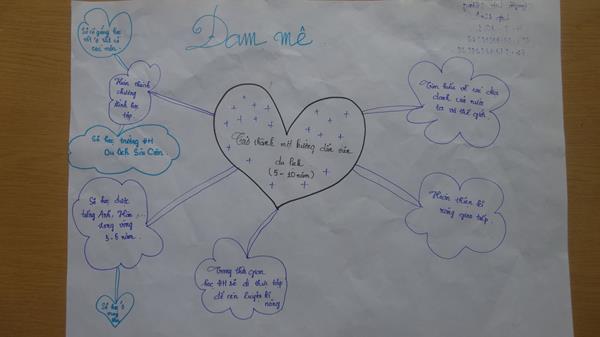 Đam mê
Sẽ cố gắng học
tốt ở tất cả
các môn.
Hoàn thành
chương
trình học
tập
Sẽ học trường ĐH
Du lịch Sài Gòn.
Sẽ học được
tiếng Anh, Hàn,...
trong vòng
3-5 năm.
Sẽ học ở
Trong thời gian
học ĐH sẽ đi thực tập
để rèn luyện kĩ
năng
Trở thành một hướng dẫn viên
du lịch
(5-10 năm)
Tìm hiểu về các địa
danh của nước
ta và thế giới
Hoàn thiện kĩ
năng giao tiếp.